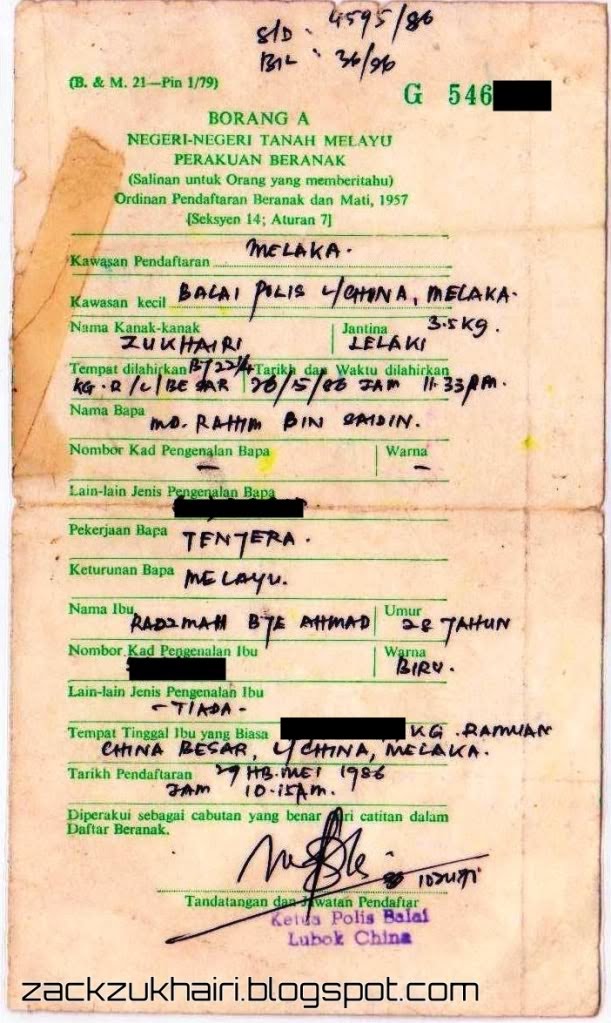 S/D : 4595/86
BIL : 36/86
(B. & M. 21—Pin 1/79)
G 546
BORANG A
NEGERI-NEGERI TANAH MELAYU
PERAKUAN BERANAK
(Salinan untuk Orang yang memberitahu)
Ordinan Pendaftaran Beranak dan Mati, 1957
[Seksyen 14; Aturan 7]
Kawasan Pendaftaran MELAKA.
Kawasan kecil BALAI POLIS L/CHINA, MELAKA.
Nama Kanak-kanak ZUKHAIRI
Jantina LELAKI 3.5 Kg.
Tempat dilahirkan KG. R/C/BESAR
Tarikh dan Waktu dilahirkan 26/5/86 JAM 11.33 PM.
Nama Bapa MD. RAHIM BIN SAIDIN.
Nombor Kad Pengenalan Bapa —
Warna —
Lain-lain Jenis Pengenalan Bapa
Pekerjaan Bapa TENTERA.
Keturunan Bapa MELAYU.
Nama Ibu RADZMAH BTE AHMAD
Umur 28 TAHUN
Nombor Kad Pengenalan Ibu
Warna BIRU.
Lain-lain Jenis Pengenalan Ibu
- TIADA -
Tempat Tinggal Ibu yang Biasa KG. RAMUAN
CHINA BESAR, L/CHINA, MELAKA.
Tarikh Pendaftaran 29 HB. MEI 1986
JAM 10.15 AM.
Diperakui sebagai cabutan yang benar dari catitan dalam
Daftar Beranak.
Tandatangan dan Jawatan Pendaftar
Ketua Polis Balai
Lubok China
zackzukhairi.blogspot.com